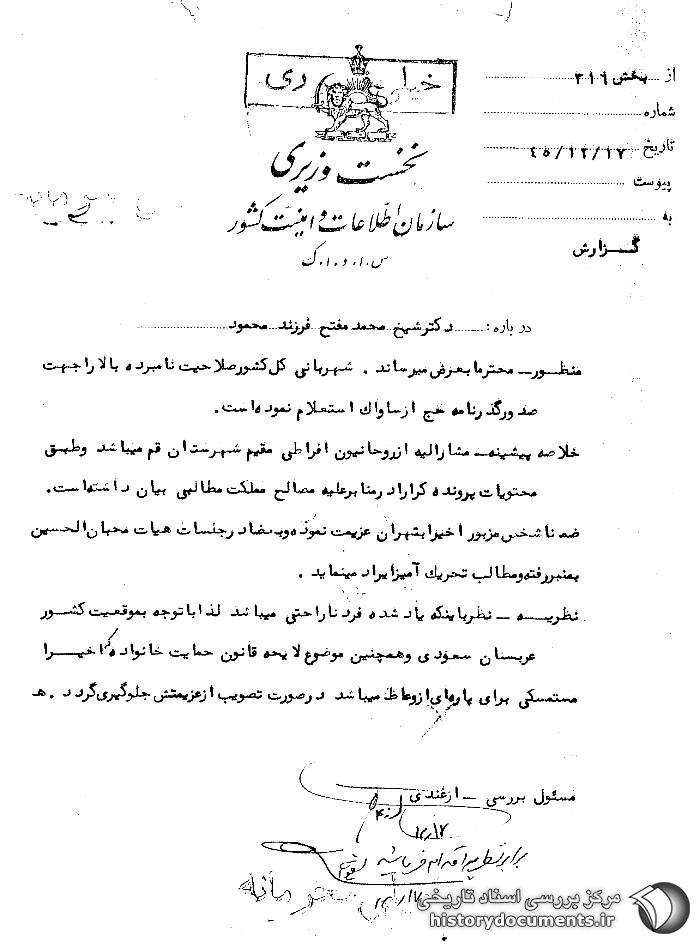 از بخش ۳۱۶
شماره
تاریخ ۴۵/۱۲/۱۷
پیوست
به
گزارش
خیلی
نخست وزیری
سازمان اطلاعات و امنیت کشور
س.ا.و.ا.ک
درباره: دکتر شیخ محمد مفتح فرزند محمود
منظور – محترما بعرض میرساند . شهربانی کل کشور صلاحیت نامبرده بالا را جهت
صدور گذرنامه حج از ساواك استعلام نموده است.
خلاصه پیشینه – مشارالیه از روحانیون افراطی مقیم شهرستان قم میباشد وطبق
محتویات پرونده کرارا در منابر علیه مصالح مملکت مطالبی بیان داشته است.
ضمنا شخص مزبور اخیرا بتهران عزیمت نموده و بعضا در جلسات هیات محبان الحسین
بمنبر رفته و مطالب تحریك آمیز ایراد مینماید .
نظریه – نظر باینکه یاد شده فرد ناراحتی میباشد لذا با توجه بموقعیت کشور
عربستان سعودی و همچنین موضوع لایحه قانون حمایت خانواده که اخیرا
مستمسکی برای پاره‌ای از وعاظ میباشد در صورت تصویب از عزیمتش جلوگیری گردد . هـ
مسئول بررسی – ازغندی
۱۲/۱۷
برابر نظریه اقدام فرمائید
مرکز بررسی اسناد تاریخی
historydocuments.ir